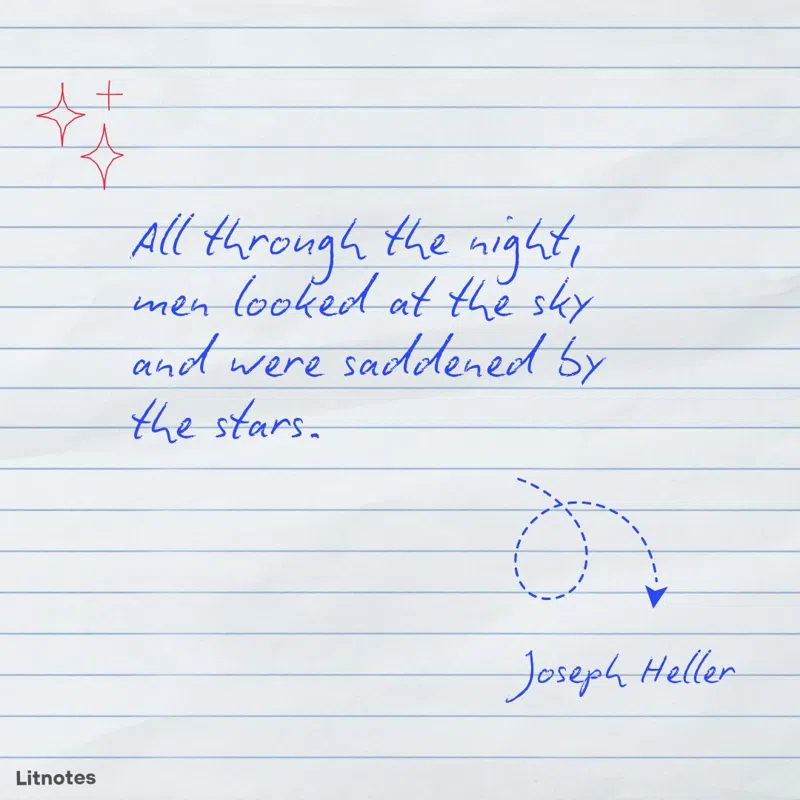 All through the night,
men looked at the sky
and were saddened by
the stars.
Joseph Heller
Litnotes